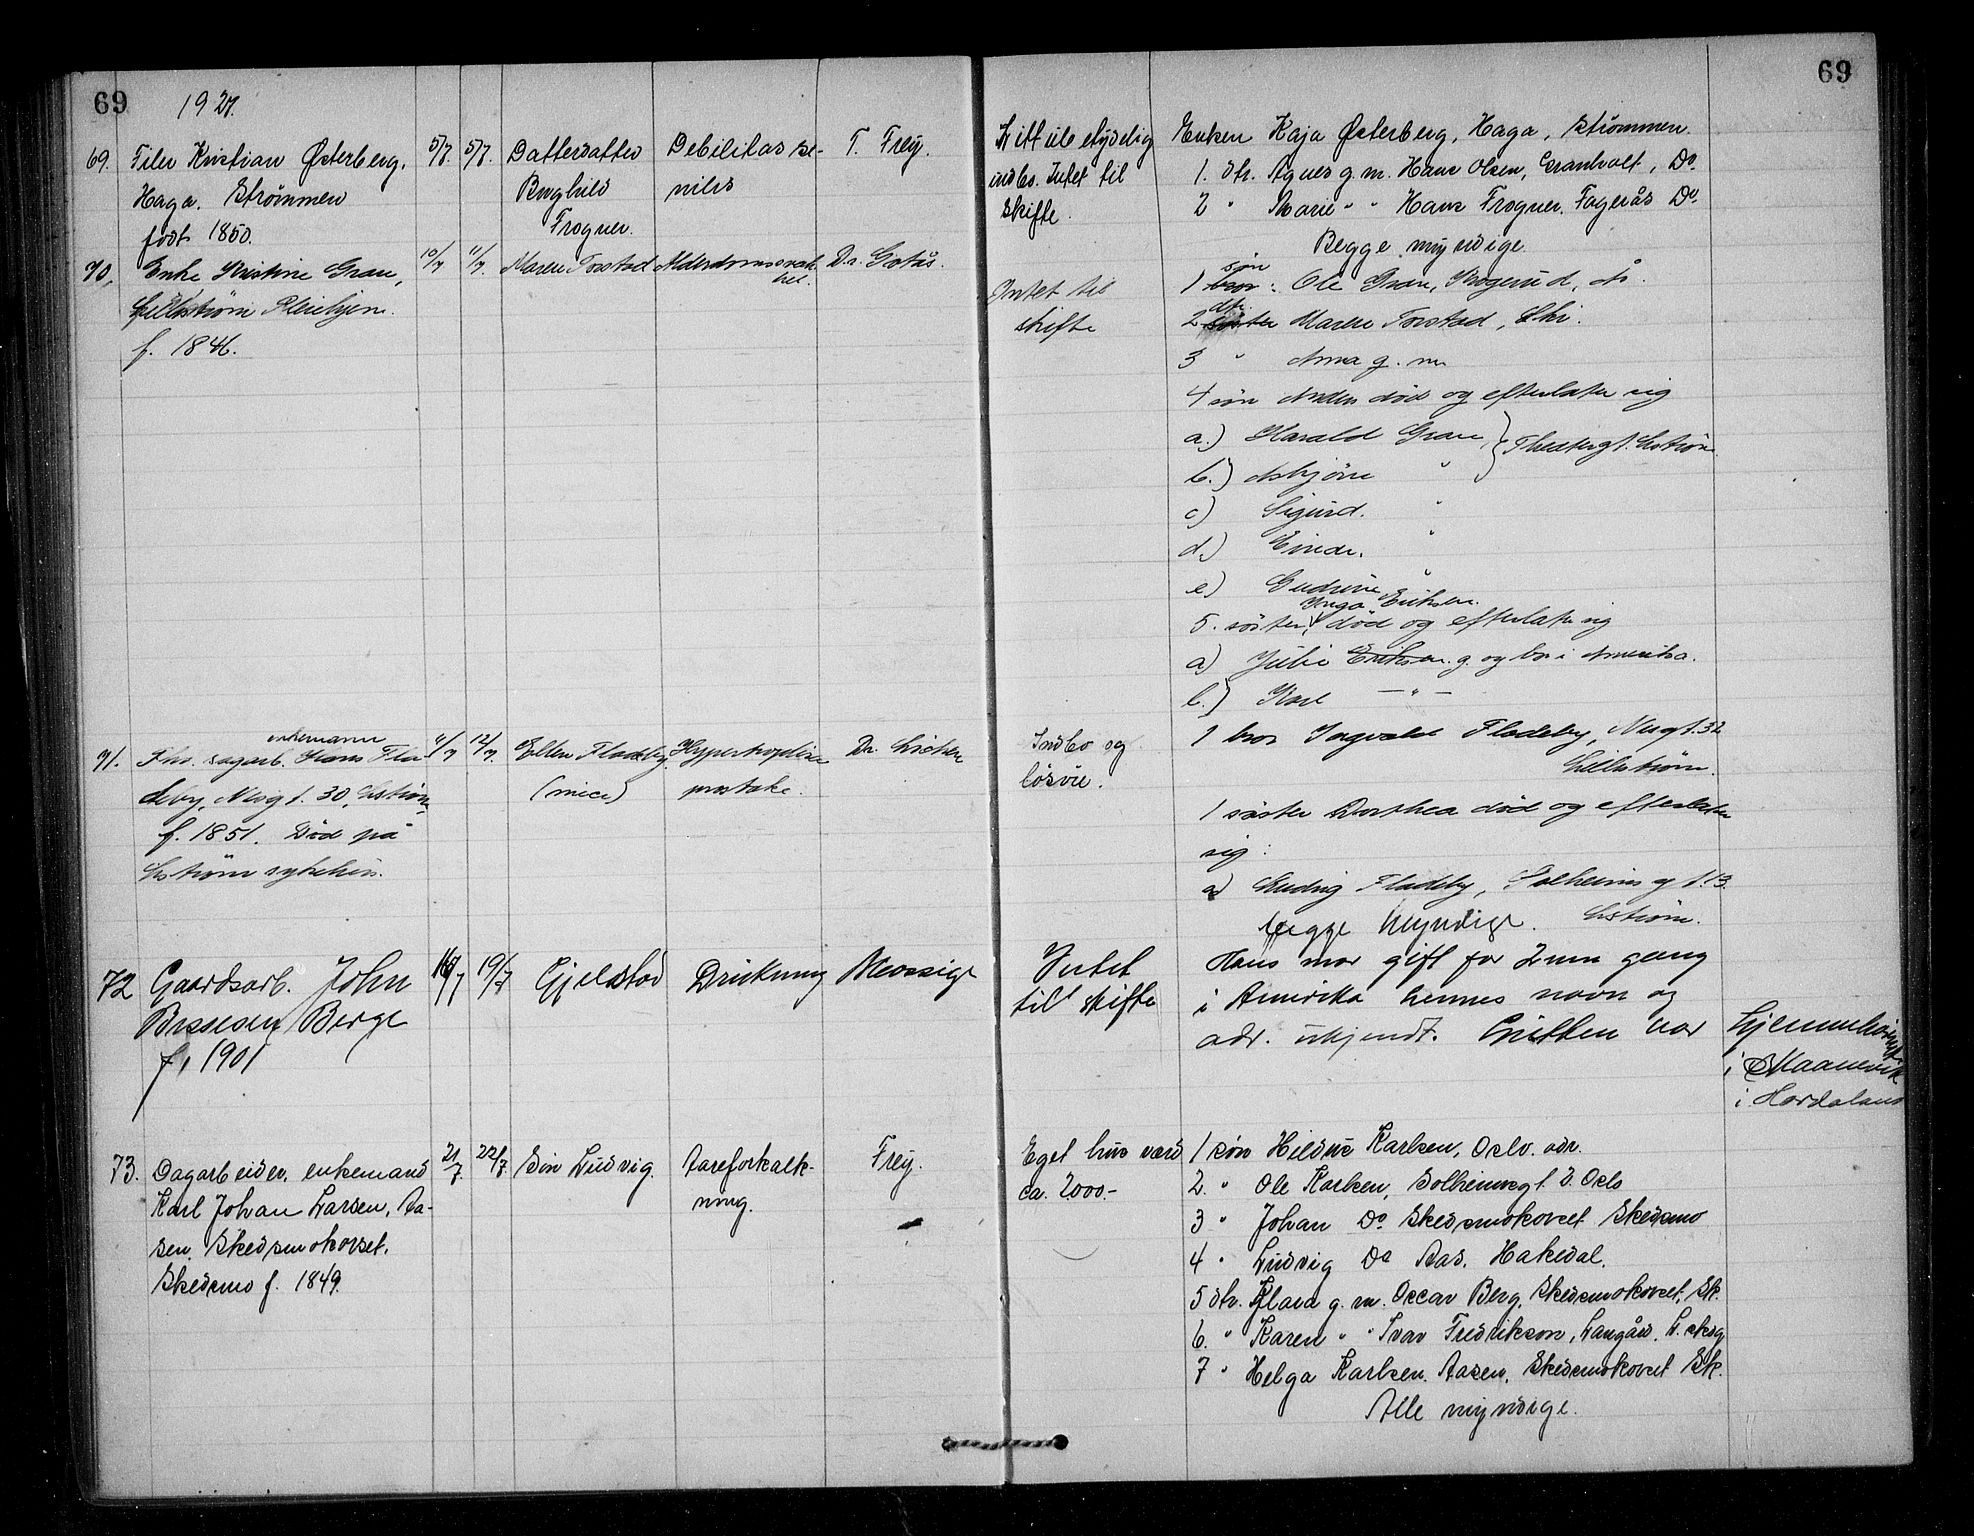 69
1927.
69
69. Filer Kristian Østerberg,
Haga. Strømmen
født 1850.
5/7. 5/7.
Datterdatter
Borghild
Frogner.
Debilitas se-
nilis
T. Frey.
Litt ubetydelig
indbo. Intet til
skifte.
Enken Kaja Østerberg, Haga, Strømmen.
1. dtr. Agnes g. m. Hans Olsen, Granholt, Do
2 " Marie " " Hans Frogner. Fagerås Do.
Begge myndige
70, Enke Kristine Gran,
Lillestrøm Pleiehjem.
f. 1846.
10/7 11/7.
Maren Torstad
Alderdomssvak-
het.
Dr. Gotås.
Intet til
skifte
søn
1 bror: Ole Gran, Skogerud, Ås.
dtr.
2 søster Maren Torstad, Ski.
3 " Anna g. m
4 søn Anders død og efterlater sig
a.) Harald Gran } Theatergt. Lstrøm
b.) Asbjørn "
c) Sigurd. "
d.) Einar. "
e) Gudrun "
Inga Eriksen.
5. søster, død og efterlater sig
a) Julie Eriksen g. og bor i Amerika.
b.) Karl — " —
enkemann
71. Fhv. sagarb. Hans Fla-
deby, Nesgt. 30, Lstrøm
f. 1851. Død på
Lstrøm sykehus.
11/7 12/7.
Ellen Fladeby
(niece)
Hypertrophia
prostata.
Dr.
Indbo og
løsøre.
1 bror Ingvald Fladeby, Nesgt. 32
Lillestrøm.
1 søster Dorthea død og efterlater
sig:
a) Ludvig Fladeby, Solheimsgt. 13
Lstrøm.
begge Myndige.
72 Gaardsarb. John
Berge
f, 1901
19/7
Gjelstad
Drukning
Mossige
Intet
til skifte
Hans mor gift for 2nen gang
i Amerika hennes navn og
adr. ukjendt. Gutten var hjemmehørende
i Maanevik
i Hordaland
73. Dagarbeider, enkemand
Karl Johan Larsen, Aa-
sen. Skedsmokorset.
Skedsmo f. 1849.
21/7. 22/7.
Søn Ludvig.
Aareforkalk-
ning.
Frey.
Eget hus værd
ca. 2000.-
1 søn Hildus Karlsen, Oslo. adr.
2. " Ole Karlsen, Solheimsgt. 3. Oslo
3 " Johan Do Skedsmokorset Skedsmo
4 " Ludvig Do Aas. Hakedal.
5 dtr. Klara g. m. Oscar Berg, Skedsmokorset, Sk.
6. " Karen " " Ivar Fredrikson, Langård. L. skog
7 " Helga Karlsen. Aasen, Skedsmokorset Sk.
Alle myndige.